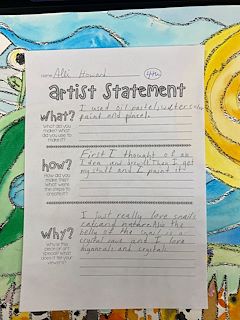 Name Alli Howard 4th
Artist Statement
What?
What did you make? What did you use to make it?
I used oil pastels, watercolor
paint and pencil.
How?
How did you make this? What were the steps to create it?
First I thought of an
idea and
when I get
my stuff and I paint it.
Why?
Why is this piece of art special? What does it for you?
I just really love snails
and nature. Also the
belly of the snail is a
crystal cave and I love
minerals and crystals.